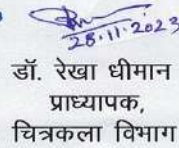 28.11.2023
डॉ. रेखा धीमान
प्राध्यापक,
चित्रकला विभाग